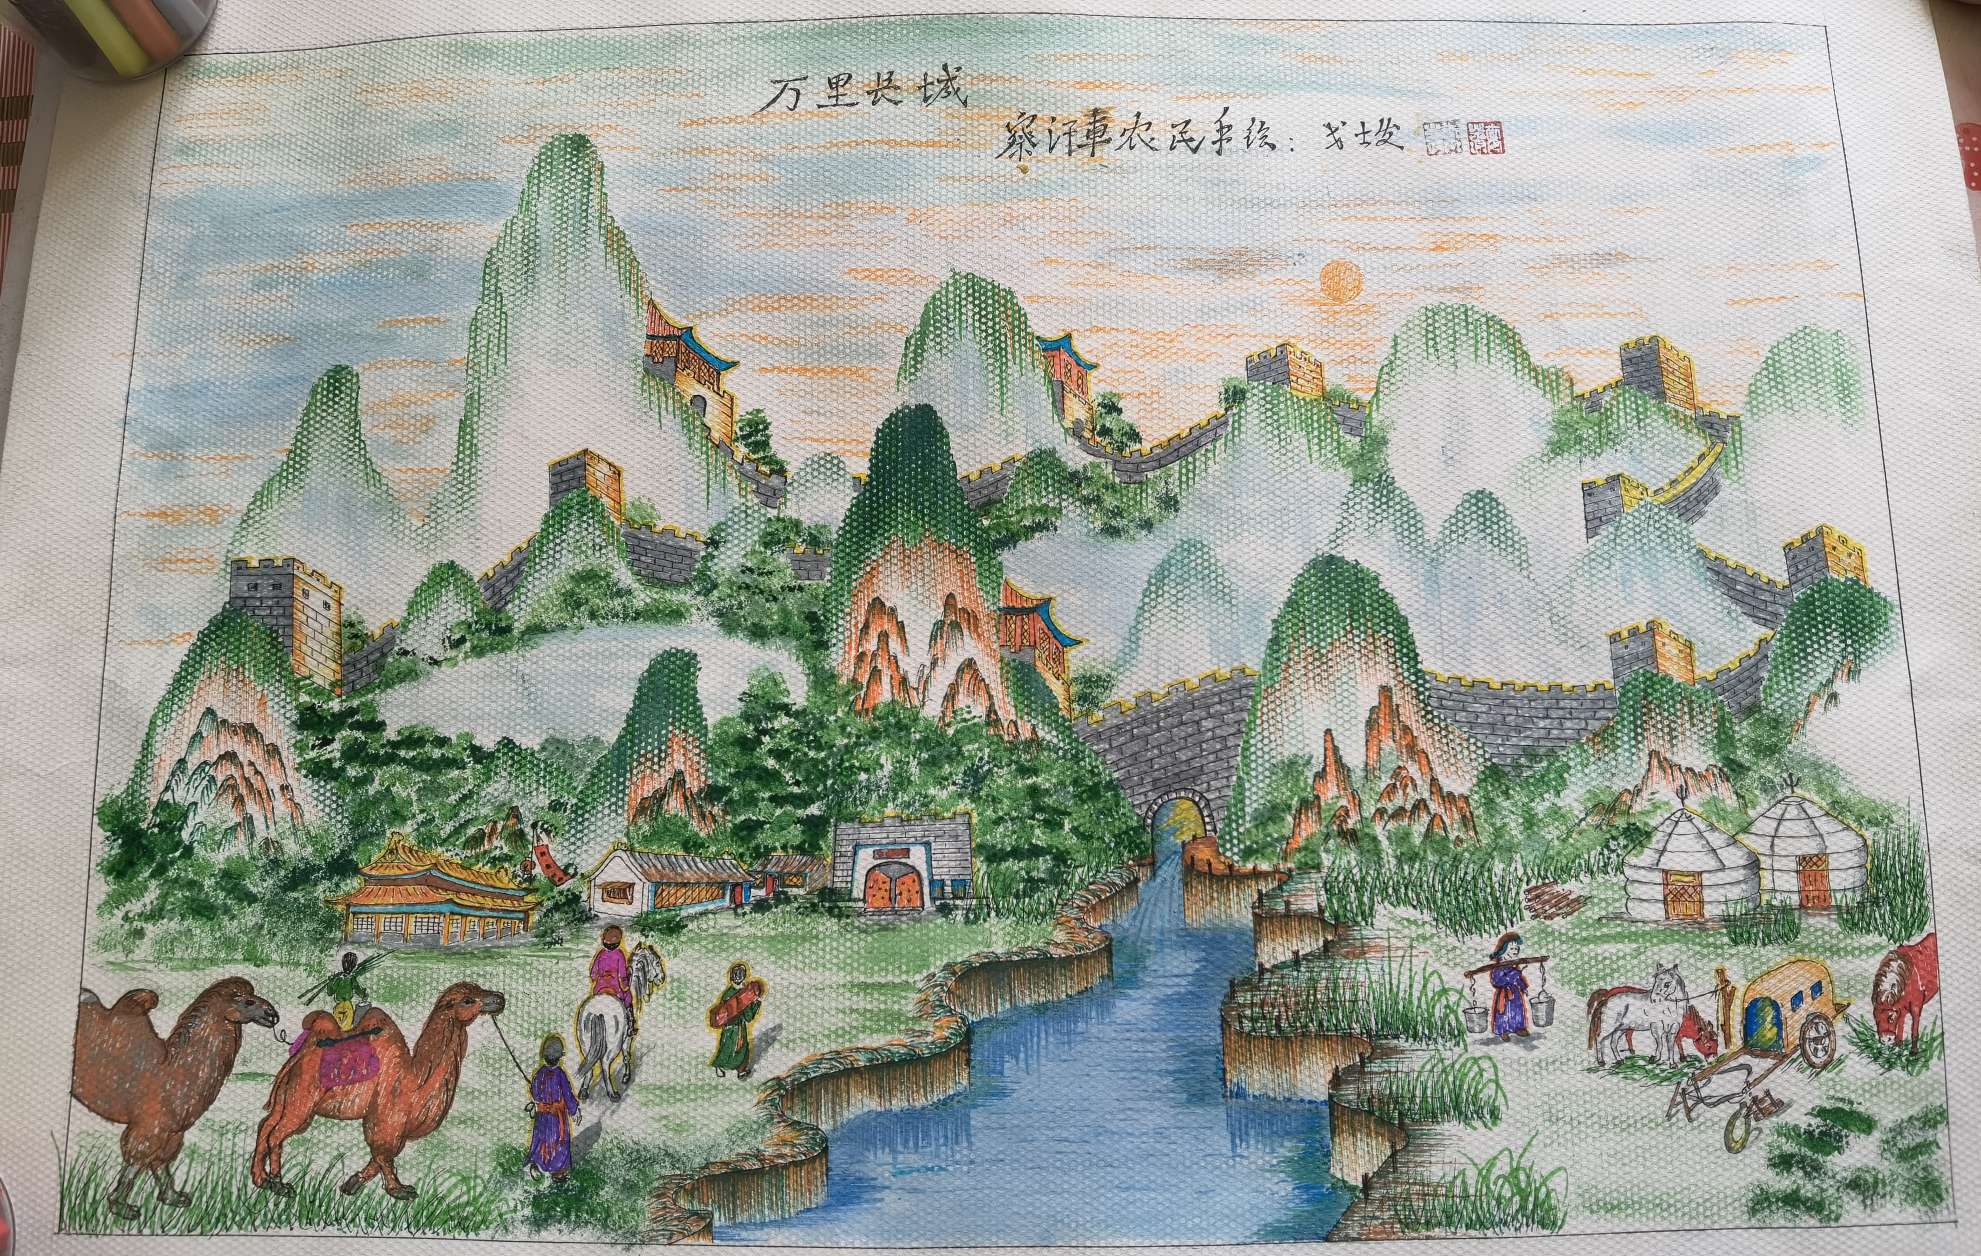 万里长城
察汗車农民手绘：戈士发